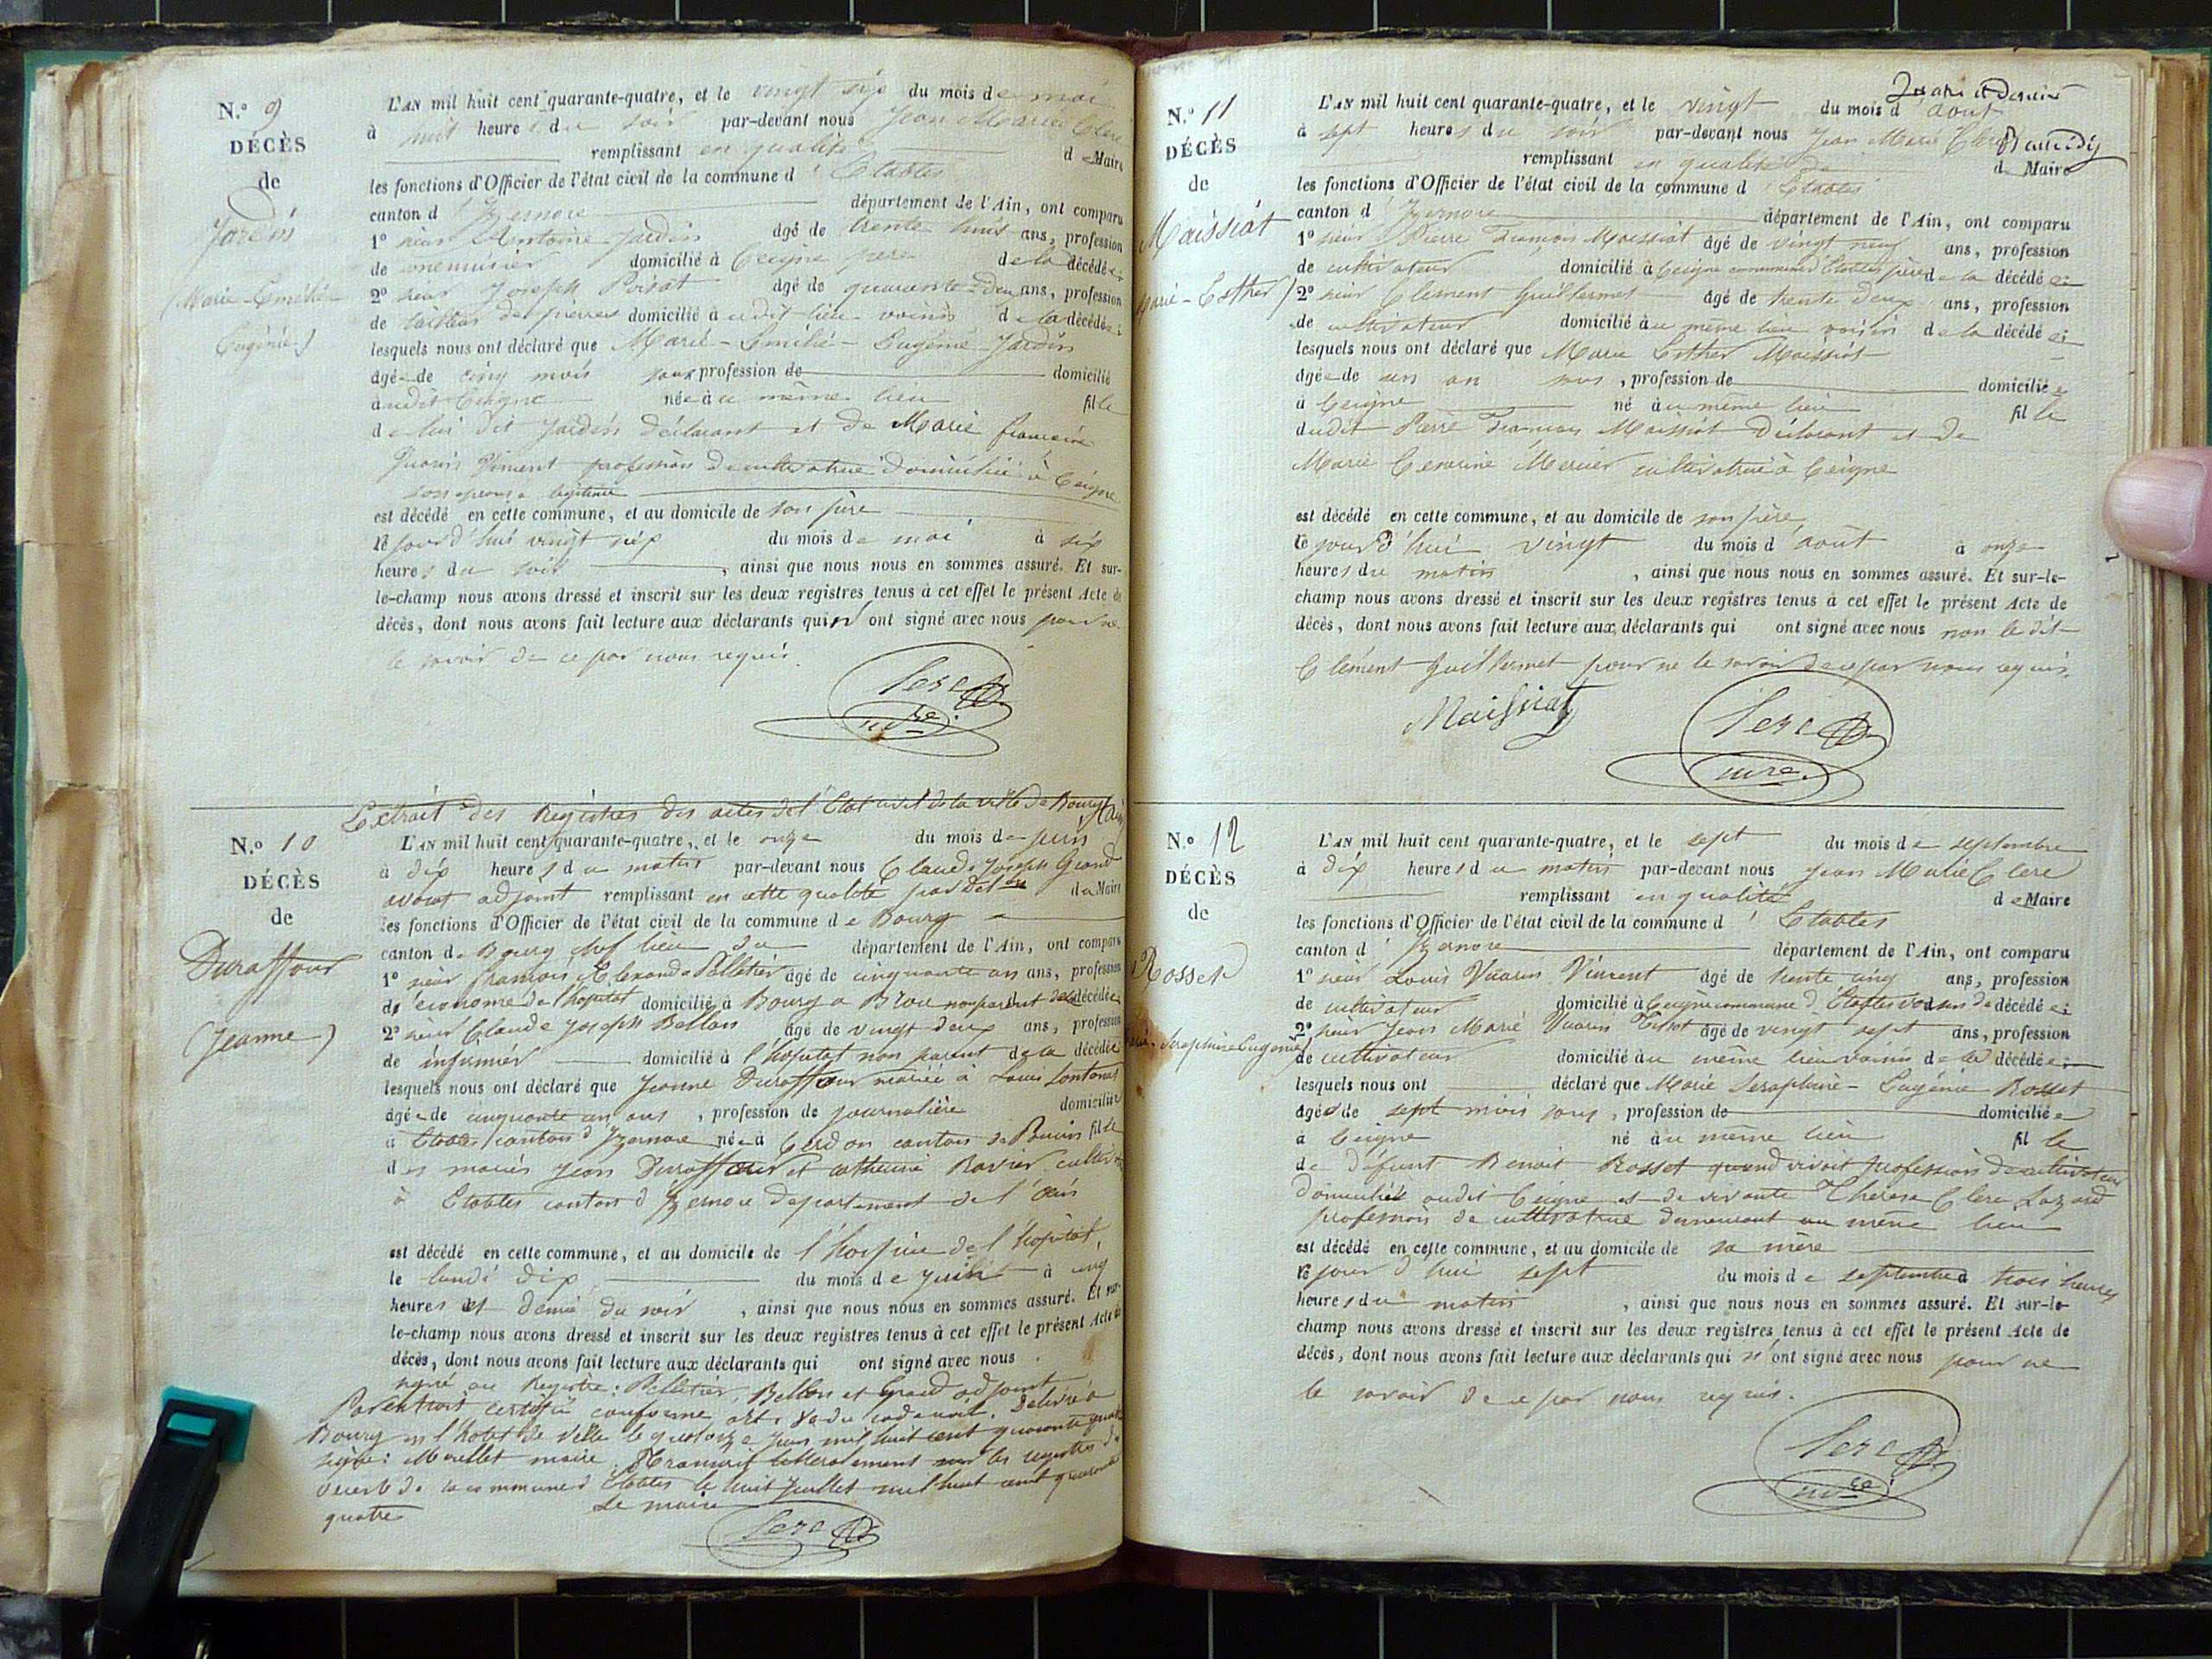 N.o 9
DÉCÈS
de
Jardin
(Marie-Emélie-
Eugénie)
L'AN mil huit cent quarante-quatre, et le vingt six du mois de mai
à huit heures du soir par-devant nous Jean Marie Clerc
remplissant en qualité de Maire
les fonctions d'Officier de l'état civil de la commune d'Etables
canton d'Izernore département de l'Ain, ont comparu
1o sieur Antoine Jardin âgé de trente huit ans, profession
de menuisier domicilié à Ceigne père de la décédée;
2o sieur Joseph Poisat âgé de quarante deux ans, profession
de tailleur de pierres domicilié à cedit lieu voisin de la décédée;
lesquels nous ont déclaré que Marie-Emélie-Eugénie Jardin
âgée de cinq mois jours profession de domicilié
audit Ceigne née au même lieu fille
de lui dit Jardin déclarant et de Marie françoise
Vuarin Vincent profession de cultivatrice domiciliée à Ceigne
son épouse légitime
est décédé en cette commune, et au domicile de son père
le jour d'hui vingt six du mois de mai à six
heures du soir, ainsi que nous nous en sommes assuré. Et sur-
le-champ nous avons dressé et inscrit sur les deux registres tenus à cet effet le présent Acte de
décès, dont nous avons fait lecture aux déclarants qui n'ont signé avec nous pour ne
le savoir de ce par nous requis.
Clerc
mre
Extrait des Registres des actes de l'Etat civil de la ville de Bourg (Ain)
N.o 10
DÉCÈS
de
Duraffour
(Jeanne)
L'AN mil huit cent quarante-quatre, et le onze du mois de juin
à dix heures du matin par-devant nous Claude Joseph Grand
avout adjoint remplissant en cette qualité par dél.on du Maire
les fonctions d'Officier de l'état civil de la commune de Bourg
canton de Bourg chef lieu du département de l'Ain, ont comparu
1o sieur françois Alexandre Pelletier âgé de cinquante un ans, profession
de économe de l'hopital domicilié à Bourg a Brou non parent de la décédée
2o sieur Claude Joseph Bellon âgé de vingt deux ans, profession
de infirmier domicilié à l'hopital non parent de la décédée
lesquels nous ont déclaré que Jeanne Duraffour mariée à Louis
âgée de cinquante un ans, profession de journalière domiciliée
à Etables canton d'Izernore née à Cerdon canton de Poncin fille
des mariés Jean Duraffour et catherine Ravier cultivat
à Etables canton d'Izernore departement de l'Ain
est décédé en cette commune, et au domicile de l'hospice de l'hôpital
le lundi dix du mois de juin à cinq
heures et demie du soir, ainsi que nous nous en sommes assuré. Et sur-
le-champ nous avons dressé et inscrit sur les deux registres tenus à cet effet le présent Acte de
décès, dont nous avons fait lecture aux déclarants qui ont signé avec nous.
signé au Registre: Pelletier, Bellon et Grand adjoint
Par extrait certifié conforme art. du code civil. Delivré à
Bourg en l'hotel de Ville le quatorze juin mil huit cent quarante quatre
signé: maire. Transcrit littéralement sur les registres de
décès de la commune d'Etables le huit juillet mil huit cent quarante
quatre
Le maire
Clerc
N.o 11
DÉCÈS
de
Maissiat
Marie-Esther)
L'AN mil huit cent quarante-quatre, et le vingt du mois d'aout
à sept heures du soir par-devant nous Jean Marie Clerc
remplissant en qualité de de Maire
les fonctions d'Officier de l'état civil de la commune d'Etables
canton d'Izernore département de l'Ain, ont comparu
1o sieur Pierre François Maissiat âgé de vingt neuf ans, profession
de cultivateur domicilié à Ceigne commune d'Etables père de la décédée;
2o sieur Clement Guilhermet âgé de trente deux ans, profession
de cultivateur domicilié au même lieu voisin de la décédée;
lesquels nous ont déclaré que Marie Esther Maissiat
âgée de un an mois, profession de domiciliée
à Ceigne né au même lieu fille
dudit Pierre François Maissiat déclarant et de
Marie Cesarine Mercier cultivatrice à Ceigne
est décédé en cette commune, et au domicile de son père
le jour d'hui vingt du mois d'aout à onze
heures du matin, ainsi que nous nous en sommes assuré. Et sur-le-
champ nous avons dressé et inscrit sur les deux registres tenus à cet effet le présent Acte de
décès, dont nous avons fait lecture aux déclarants qui ont signé avec nous non le dit
Clément Guilhermet pour ne le savoir de ce par nous requis.
Maissiat Clerc
mre.
N.o 12
DÉCÈS
de
Rosset
Seraphine Eugénie)
L'AN mil huit cent quarante-quatre, et le sept du mois de septembre
à dix heures du matin par-devant nous Jean Marie Clerc
remplissant en qualité de Maire
les fonctions d'Officier de l'état civil de la commune d'Etables
canton d'Izernore département de l'Ain, ont comparu
1o sieur Louis Vuarin Vincent âgé de trente cinq ans, profession
de cultivateur domicilié à Ceigne commune d'Etables voisin de décédée;
2o sieur Jean Marie Vuarin Tissot âgé de vingt sept ans, profession
de cultivateur domicilié au même lieu voisin de la décédée;
lesquels nous ont déclaré que Marie Seraphine-Eugénie Rosset
âgée de sept mois jours, profession de domiciliée
à Ceigne né au même lieu fille
de défunt Benoit Rosset quand vivait profession de cultivateur
domicilié audit Ceigne et de vivante Thérèse Clerc Lazard
profession de cultivatrice demeurant au même lieu
est décédé en cette commune, et au domicile de sa mère
le jour d'hui sept du mois de septembre à trois heures
heures du matin, ainsi que nous nous en sommes assuré. Et sur-le-
champ nous avons dressé et inscrit sur les deux registres tenus à cet effet le présent Acte de
décès, dont nous avons fait lecture aux déclarants qui n'ont signé avec nous pour ne
le savoir de ce par nous requis.
Clerc
mre